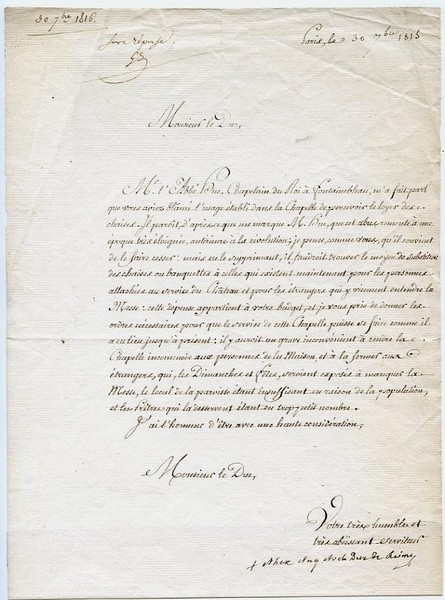 30 7bre 1816.
Sans réponse.
Paris, le 30 7bre 1816
Monsieur le Duc,
Mr. l'Abbé Duc, Chapelain du Roi à Fontainebleau, m'a fait part
que vous aviez blâmé l'usage établi dans la Chapelle de percevoir le loyer des
chaises. Il paroît, d'après ce que me marque M. Duc, que cet abus remonte à une
époque très éloignée, antérieure à la révolution; je pense, comme vous, qu'il convient
de le faire cesser: mais en le supprimant, il faudroit trouver le moyen de substituer
des chaises ou banquettes à celles qui existent maintenant pour les personnes
attachées au service du Château et pour les étrangers qui y viennent entendre la
Messe: cette dépense appartient à votre budget, et je vous prie de donner les
ordres nécessaires pour que le service de cette Chapelle puisse se faire comme il
a eu lieu jusqu'à présent: il y auroit un grave inconvénient à rendre la
Chapelle incommode aux personnes de la Maison, et à la fermer aux
étrangers, qui, les Dimanches et Fêtes, seroient exposés à manquer la
Messe, le local de la paroisse étant insuffisant en raison de la population,
et les Prêtres qui la desservent étant en trop petit nombre.
J'ai l'honneur d'être avec une haute considération,
Monsieur le Duc,
Votre très humble et
très obéissant serviteur
+ Alex Ang Arch Duc de Reims